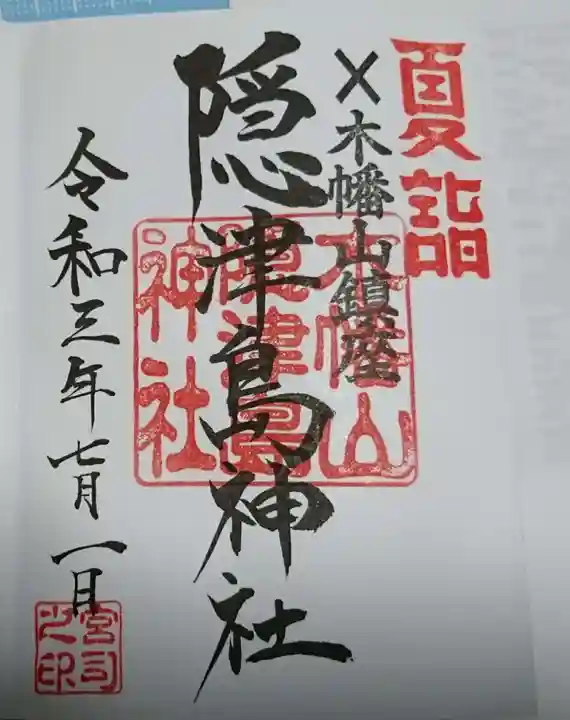 夏詣
〤木幡山鎮座
隠津島神社
木幡山
隠津島
神社
令和三年七月一日
宮司
之印